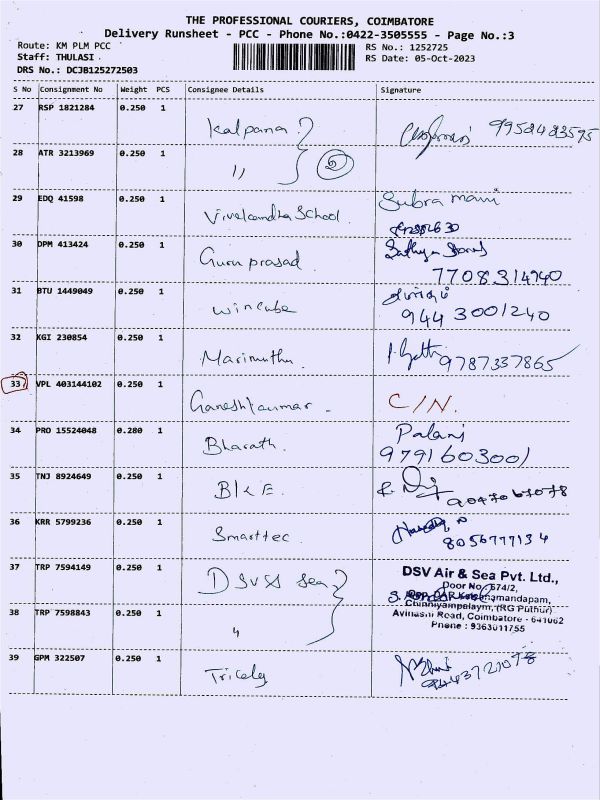 THE PROFESSIONAL COURIERS, COIMBATORE
Delivery Runsheet - PCC - Phone No.:0422-3505555 - Page No.:3
Route: KM PLM PCC
RS No.: 1252725
Staff: THULASI
RS Date: 05-Oct-2023
DRS No.: DCJB125272503
S No Consignment No Weight PCS Consignee Details Signature
27 RSP 1821284 0.250 1 Kalpana 9952423595
28 ATR 3213969 0.250 1 " 2
29 EDQ 41598 0.250 1 Vivekandha School Subramani
30 DPM 413424 0.250 1 Guru prasad
7708314940
31 BTU 1449049 0.250 1 wincube
944 3001240
32 KGI 230854 0.250 1 Marimuthu 9787337865
33 VPL 403144102 0.250 1 Ganeshkumar C/N.
34 PRO 15524048 0.280 1 Bharath Palani
9791603001
35 TNJ 8924649 0.250 1 BKE
36 KRR 5799236 0.250 1 Smarttec
8056777134
37 TRP 7594149 0.250 1 DSV Sea
DSV Air & Sea Pvt. Ltd.,
Door No. 674/2,
Chinniyampalayam, (RG Puthur)
38 TRP 7598843 0.250 1 "
Avinashi Road, Coimbatore - 641062
Phone : 9363011755
39 GPM 322507 0.250 1 Tricely